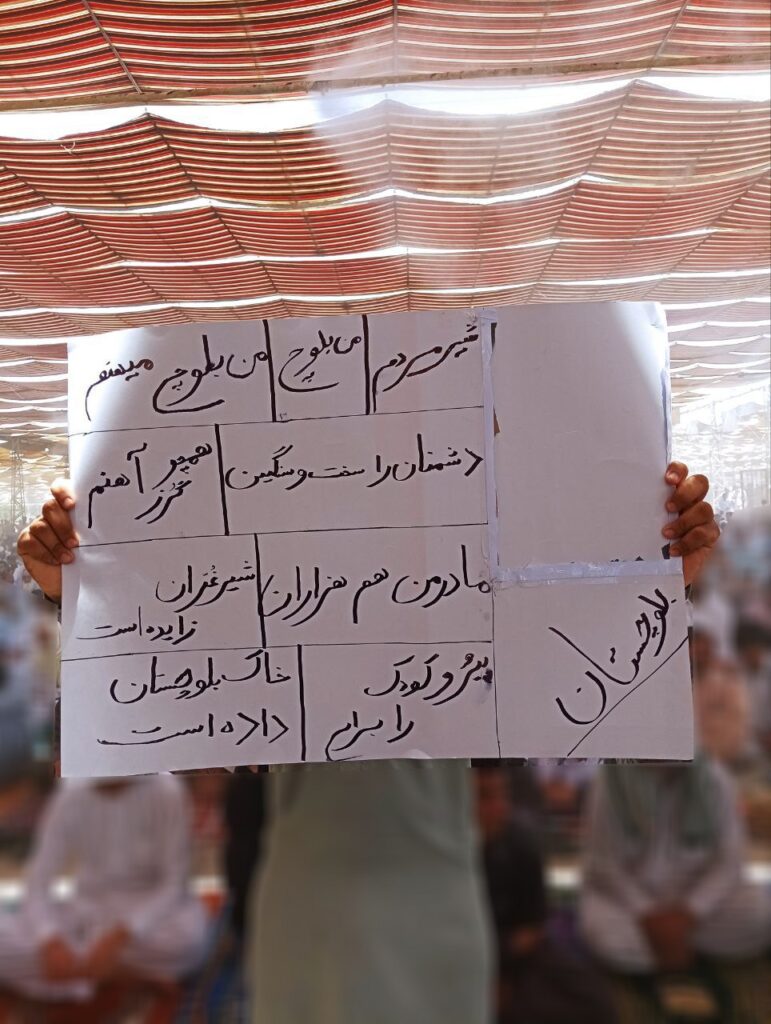 شیرمردم من بلوچ من بلوچ میهنم
دشمنان را سفت و سنگین همچو گرز آهنم
مادرون هم هزاران شیر غُرّان زایده است
پیر و کودک را برای خاک بلوچستان داده است
بلوچستان